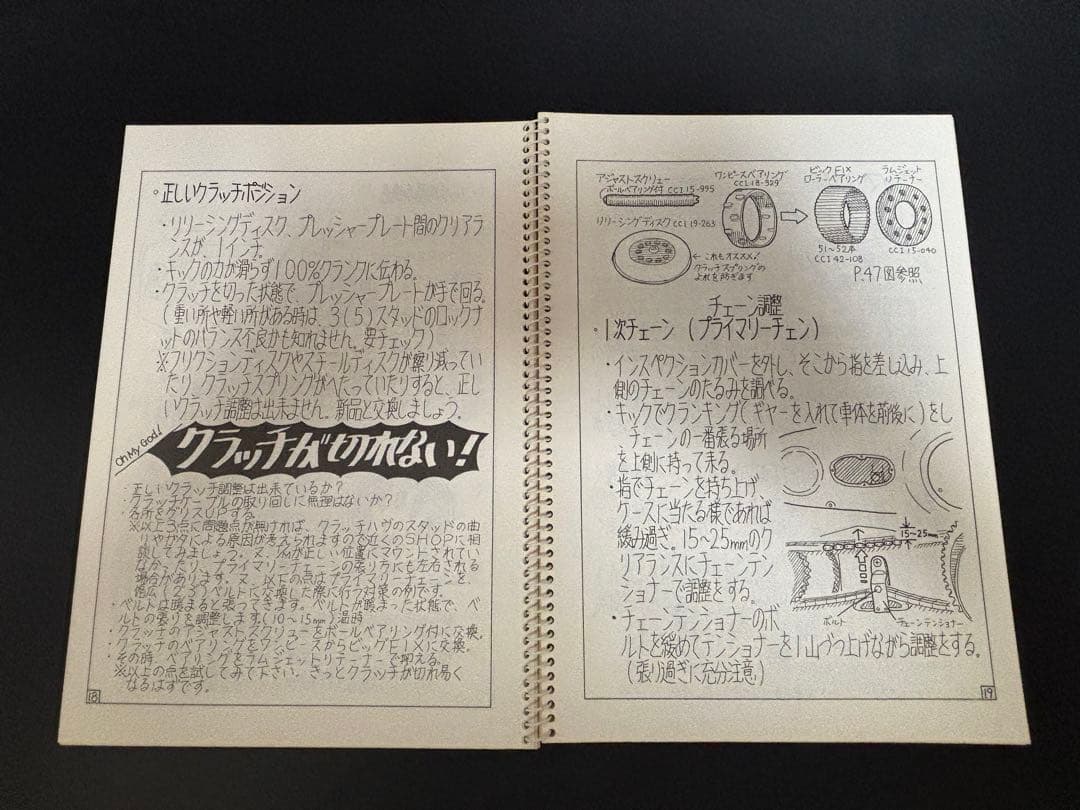 ◦正しいクラッチポジション
・リリーシングディスク、プレッシャープレート間のクリアラ
ンスが、1インチ。
・キックの力が滑らず100%クランクに伝わる。
・クラッチを切った状態で、プレッシャープレートが手で回る。
(重い所や軽い所がある時は、3(5)スタッドのロックナ
ットのバランス不良かも知れません。要チェック)
※フリクションディスクやスチールディスクが擦り減ってい
たり、クラッチスプリングがへたっていたりすると、正し
いクラッチ調整は出来ません。新品と交換しましょう。
Oh My God!
クラッチが切れない!
・正しいクラッチ調整は出来ているか?
・クラッチケーブルの取り回しに無理はないか?
・各所をグリスUPする。
※以上3点に問題点が無ければ、クラッチハヴのスタッドの曲
りやガタによる原因が考えられますので近くのSHOPに相
談してみましょう。又、T/Mが正しい位置にマウントされてい
なかったり、プライマリーチェーンの張り方にも左右される
場合があります。又、以下の点はプライマリーチェーンを、
幅広(2、3)ベルトに交換した際に行う対策の例です。
・ベルトは暖まると張ってきます。ベルトが暖まった状態で、ベ
ルトの張りを調整します(10〜15mm)温時
・クラッチのアジャストスクリューをボールベアリング付に交換。
・クラッチのベアリングをワンピースからビッグFIXに交換。
・その時、ベアリングをラムジェットリテーナーで抑える。
※以上の点を試してみて下さい。きっとクラッチが切れ易く
なるはずです。
18
アジャストスクリュー
ボールベアリング付 CCI 15-995
ワンピースベアリング
CCI 18-329
ビックFIX
ローラーベアリング
ラムジェット
リテーナー
リリーシングディスク CCI 19-263
51〜52本
CCI 42-108
CCI 15-040
←これもオススメ!
クラッチスプリングの
よれを防ぎます
P.47図参照
チェーン調整
◦1次チェーン(プライマリーチェン)
・インスペクションカバーを外し、そこから指を差し込み、上
側のチェーンのたるみを調べる。
・キックでクランキング(ギヤーを入れて車体を前後に)をし
チェーンの一番張る場所
を上側に持って来る。
・指でチェーンを持ち上げ、
ケースに当たる様であれば
緩み過ぎ。15〜25mmのク
リアランスにチェーンテン
ショナーで調整をする。
15〜25mm
ボルト
チェーンテンショナー
・チェーンテンショナーのボ
ルトを緩めてテンショナーを1山づつ上げながら調整をする。
(張り過ぎに充分注意)
19